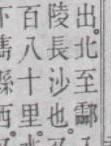 出北至酃
陵長沙也
百八十里
下雋縣西